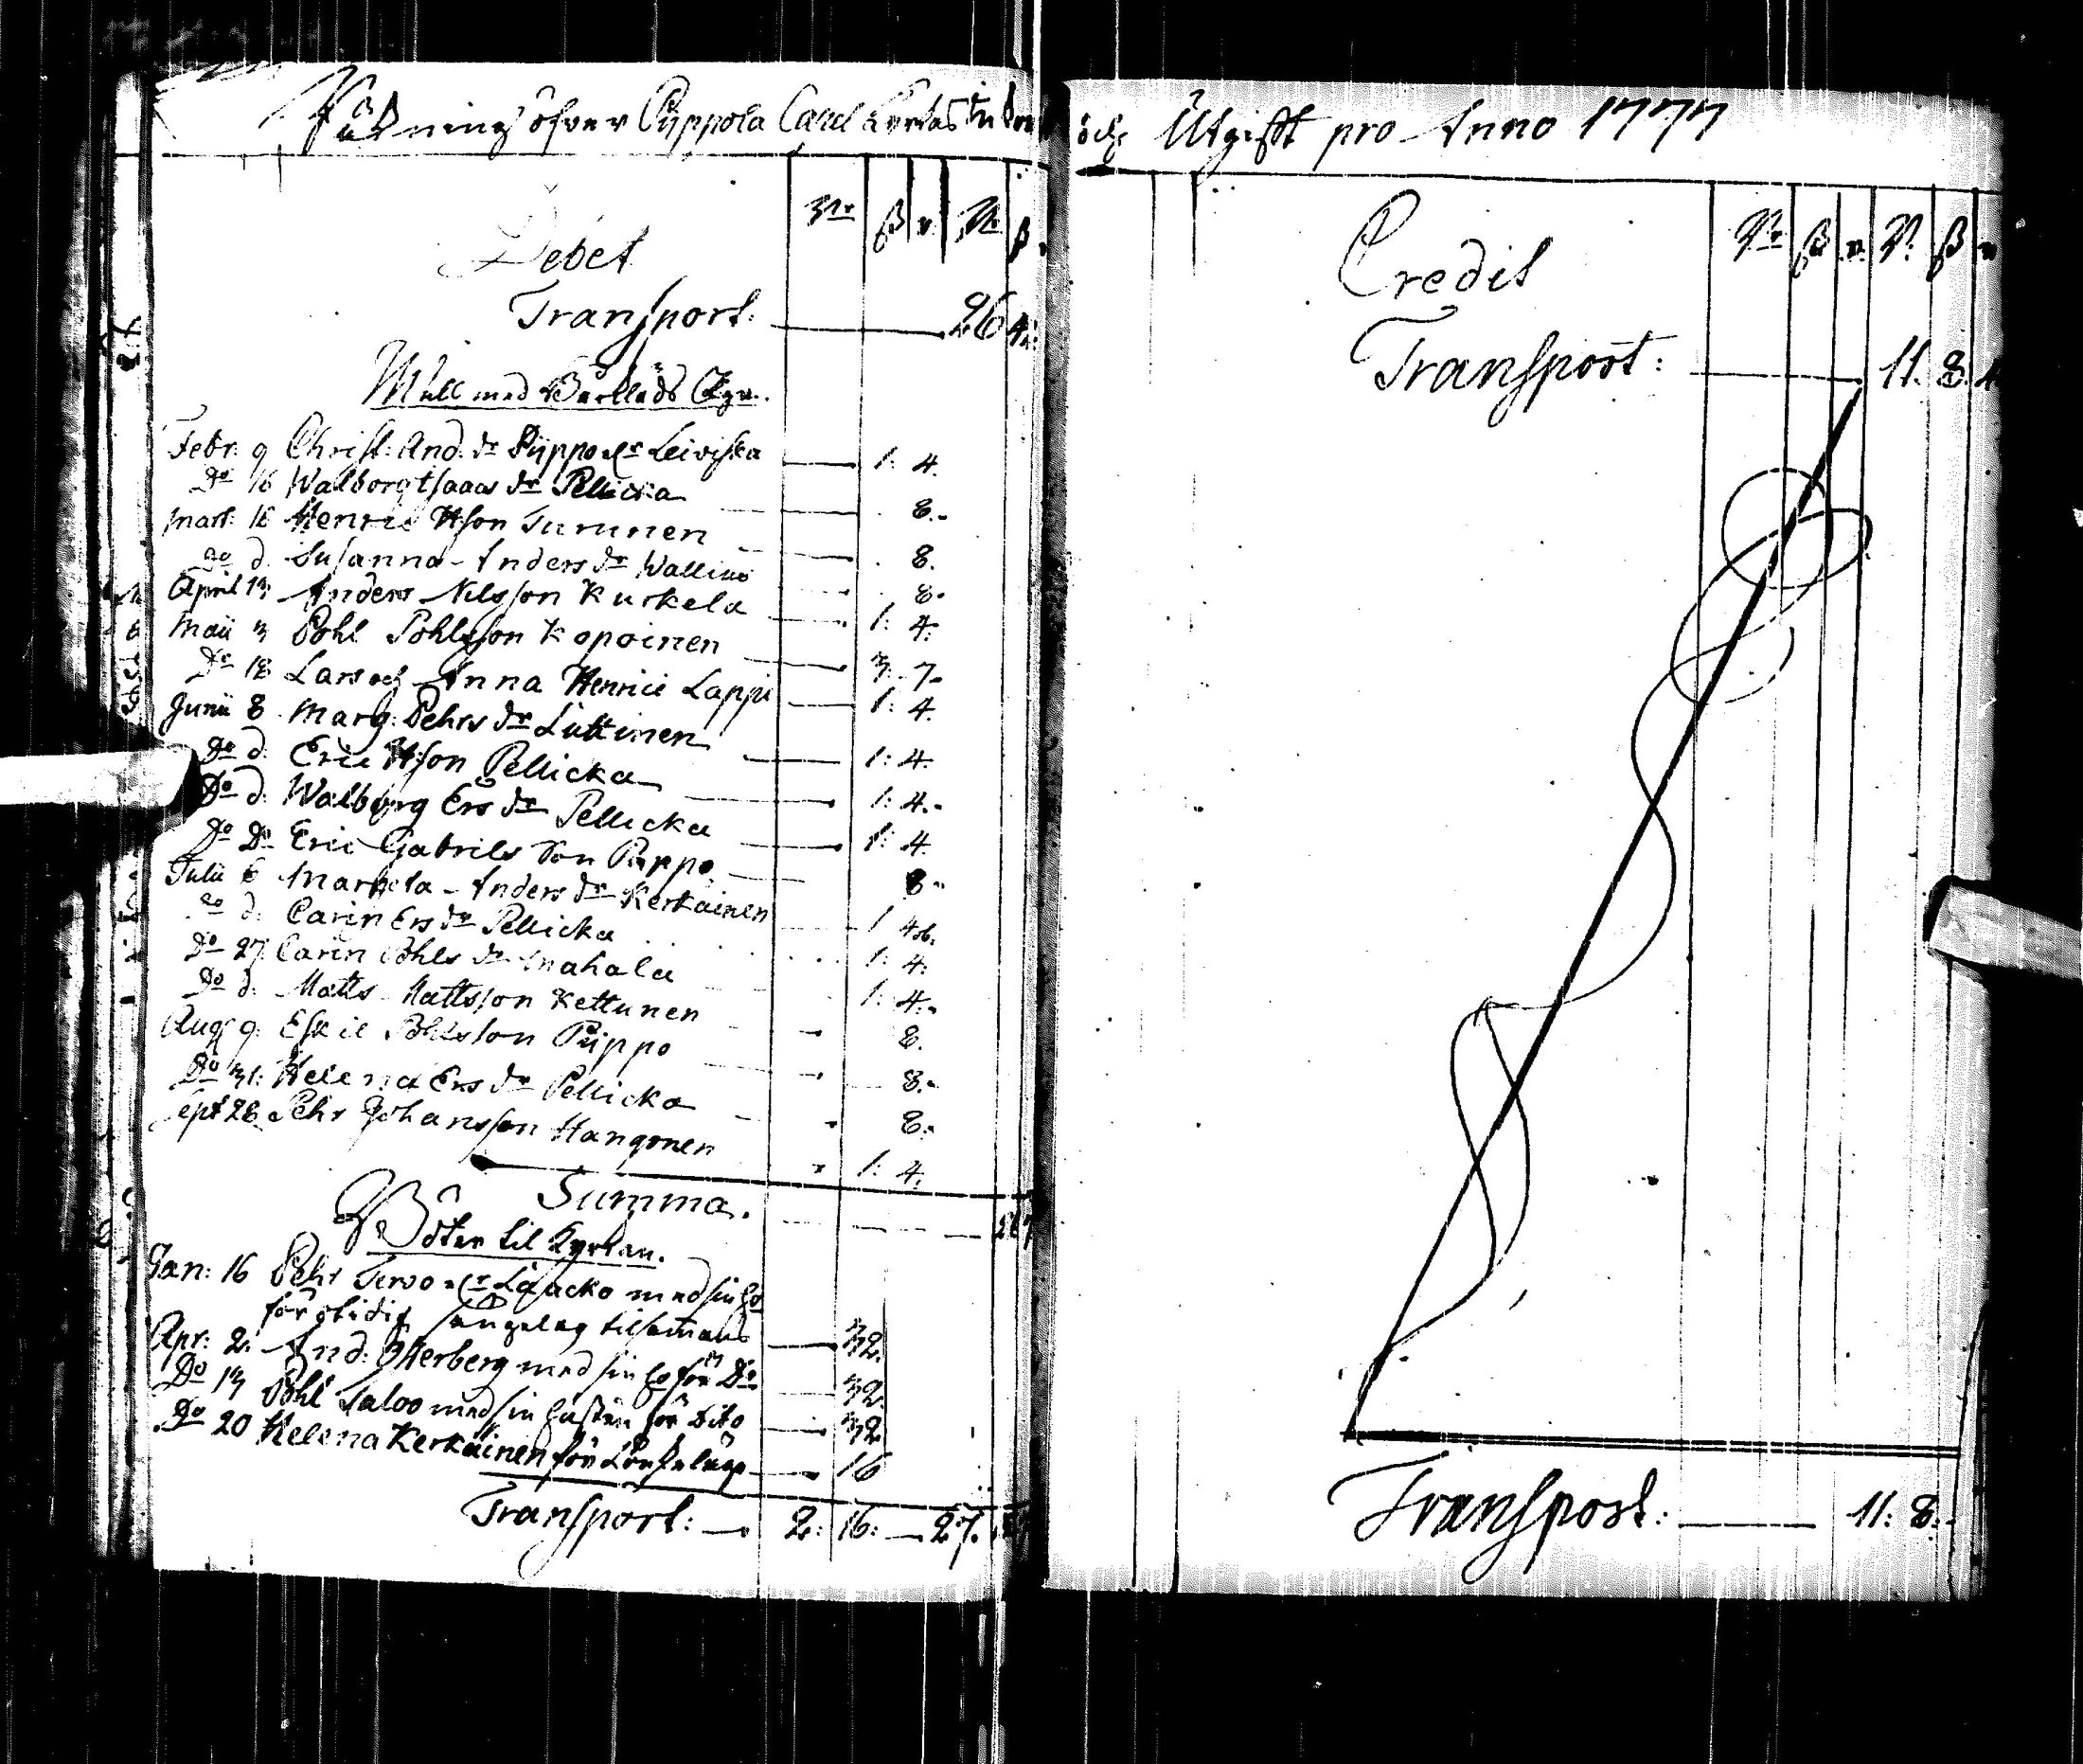 Räkning öfver Pyppola Capel Kyrkas
Debet
Transport: 26
Mull med Bårkläds Afgn.
Febr: 9 Christ: And. dr Pyppo elr Leiviska 1: 4.
Do 16 Walborg Isaacs dr Pellicka 8.
Mart: 16 Henric H:son Turunen 8.
Do d. Susanna Anders dr Wallius 8.
April 13 Anders Nilsson Kurkela 1: 4.
Maii 3 Pohl Pohlsson Kopoinen 3. 7.
Do 18 Lars och Anna Henrici Lappi 1: 4.
Junii 8 Marg: Pehrs dr Luttinen 1: 4.
Do d. Eric H:son Pellicka 1: 4.
Do d: Walborg Ers dr Pellicka 1: 4.
Do Do Eric Gabriels Son Pyppo 8.
Julii 6 Marketa Anders dr Kerkäinen 1
Do d: Carin Ers dr Pellicka 1: 4.
Do 27: Carin Pohls dr Mahala 1: 4.
Do d: Matts Mattsson Kettunen 8.
Aug: 9. Eskil Pohlsson Pyppo 8.
Do 31: Helena Ers dr Pellicka 8.
Sept 28 Pehr Johansson Hangonen 1: 4.
Summa.
Böter til Kyrkan.
Jan: 16 Pehr Tervo elr Laacko med sin
för otidig sängelag tilsamans 32.
Apr: 2. And: Österberg med sin för Do 32.
Do 13 Pohl Saloo med sin hustru för Dito 32
Do 20 Helena Kerkäinen för Lönskaläge 16
Transport: 2: 16: 27.
och Utgift pro Anno 1777
Credit
Transport: 11. 8. 4
Transport: 11: 8.